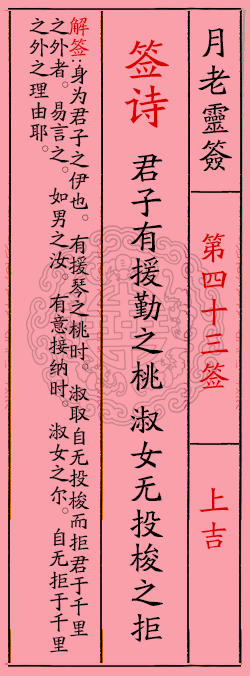 月老靈簽
第四十三签
上吉
签诗
君子有援勤之桃 淑女无投梭之拒
解签:身为君子之伊也。有援琴之桃时。淑取自无投梭而拒君于千里
之外者。易言之。如男之汝。有意接纳时。淑女之尔。自无拒于千里
之外之理由耶。